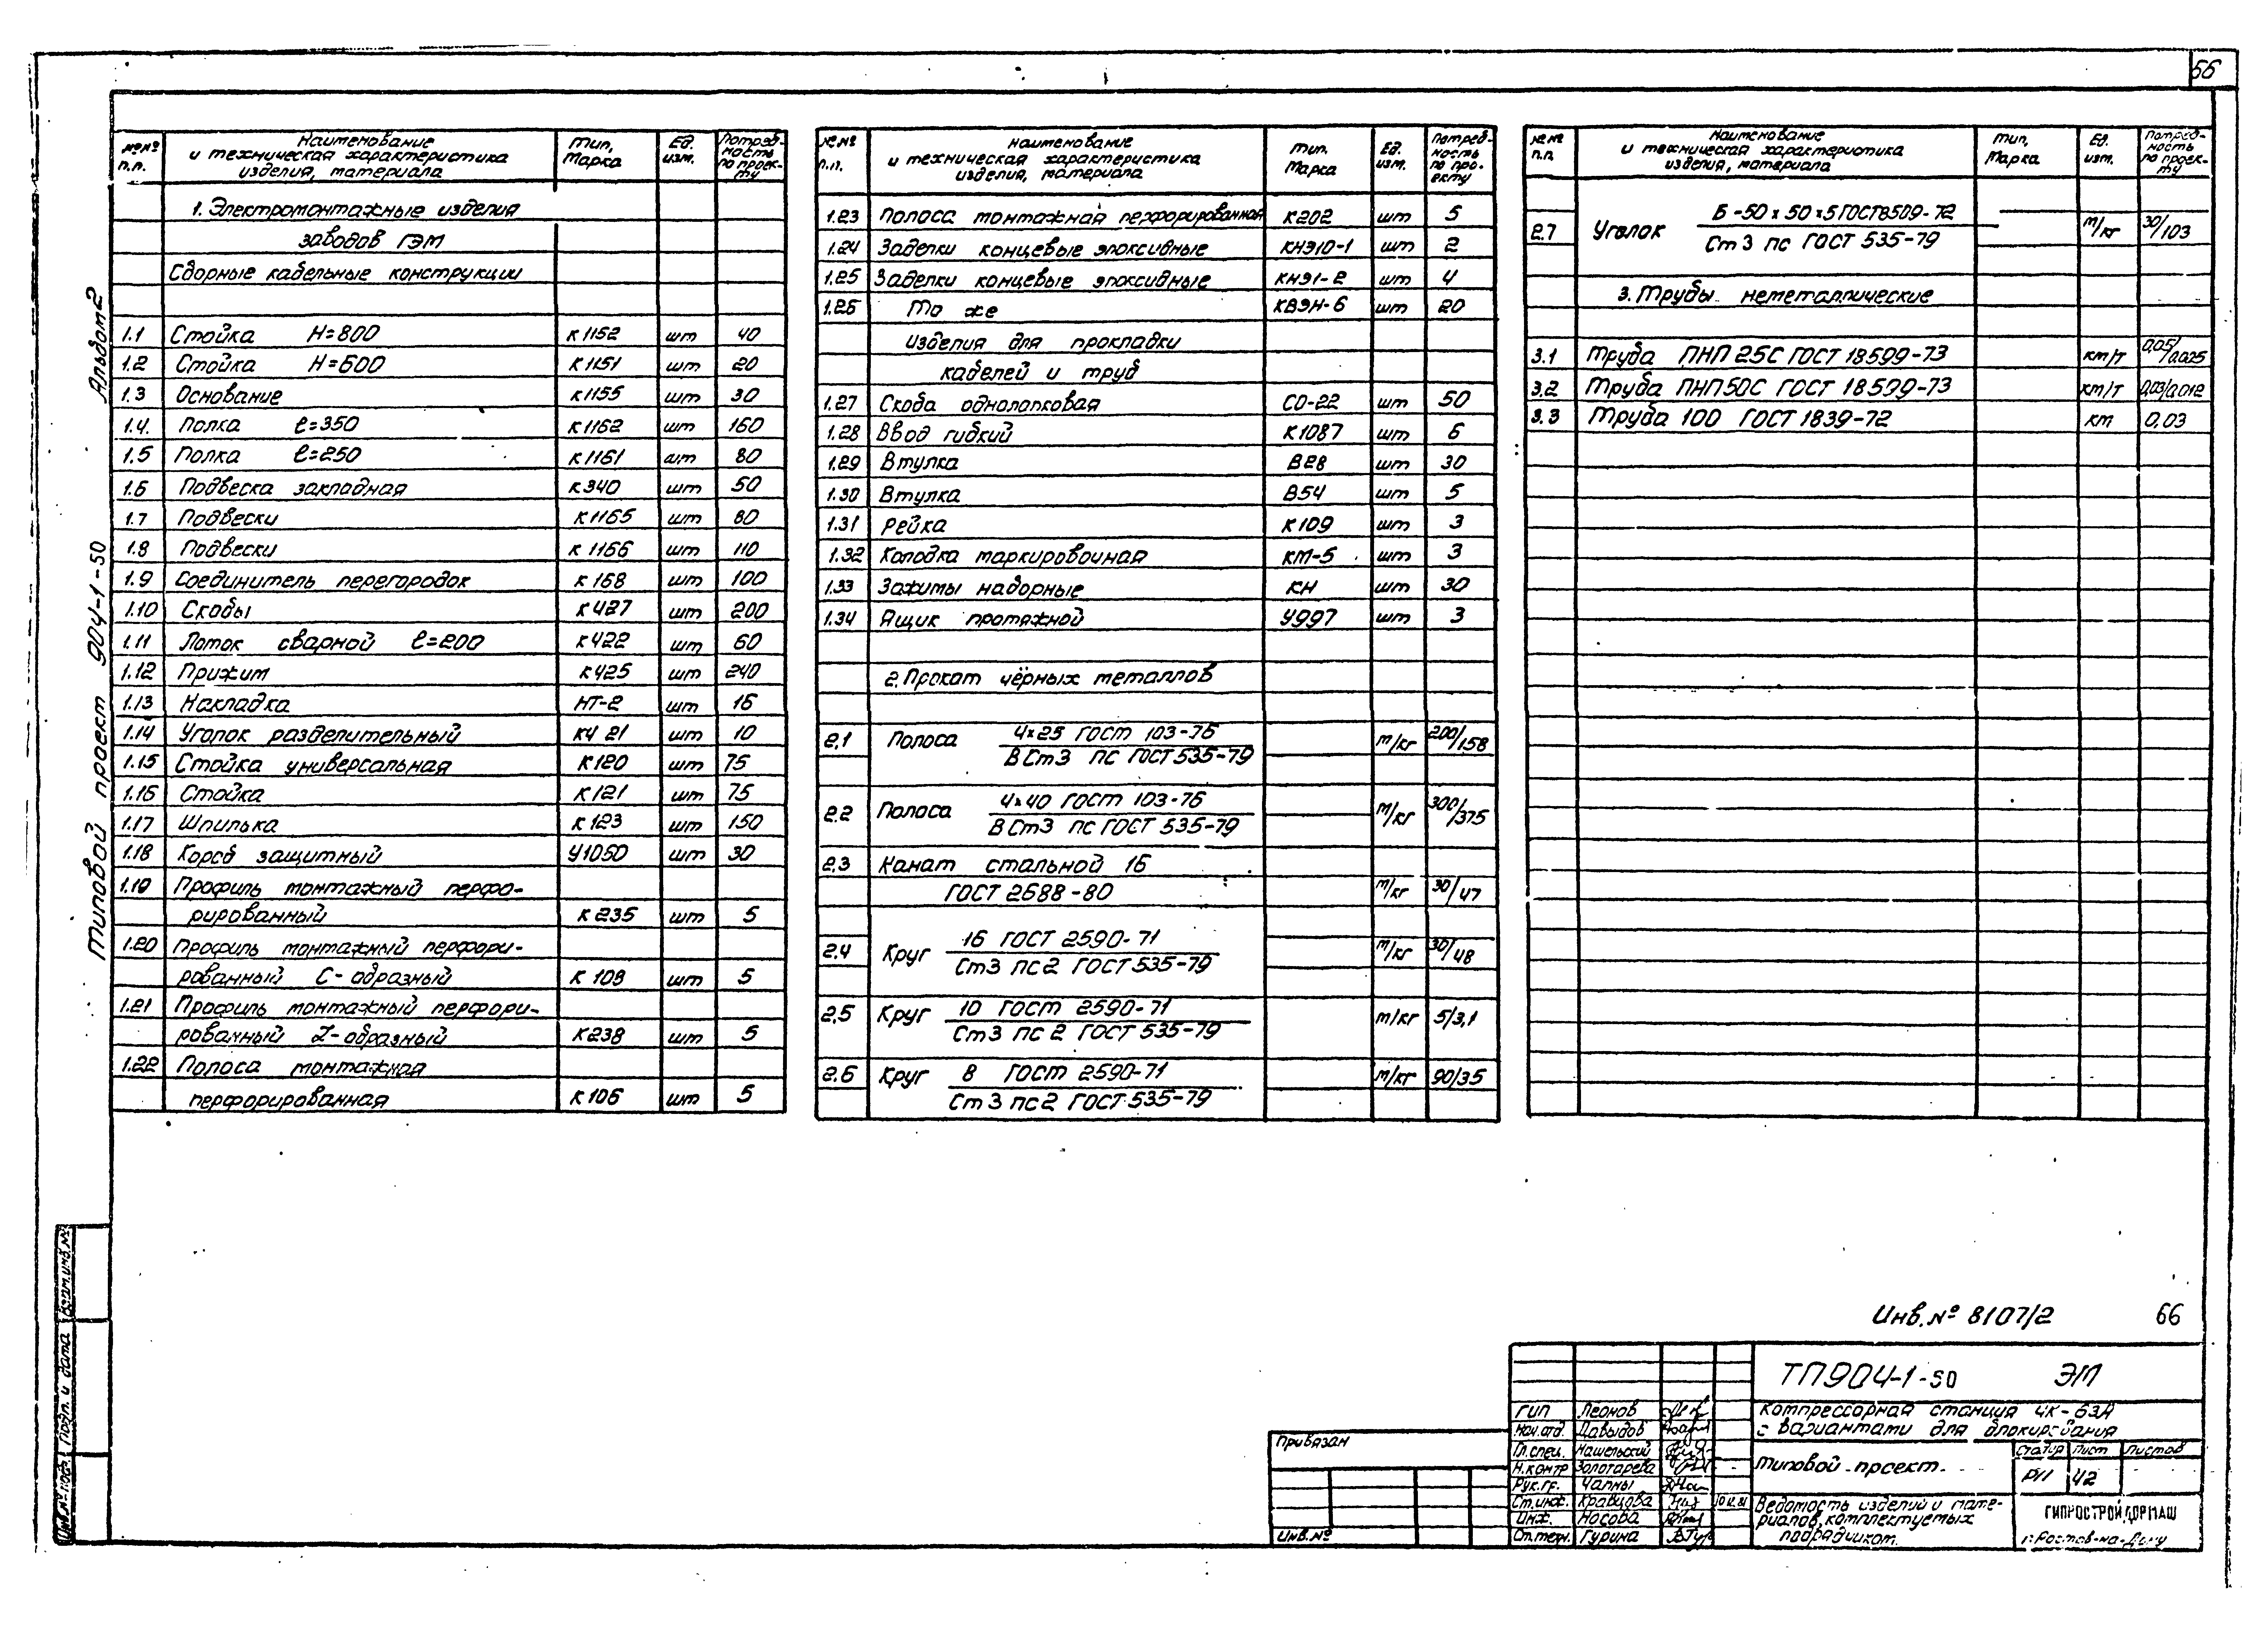 56
Альбом 2
Типовой проект 904-1-50
№№ п.п. | Наименование и техническая характеристика изделия, материала | Тип, Марка | Ед. изм. | Потреб-ность по проек-ту
1. Электромонтажные изделия
заводов ГЭМ
Сборные кабельные конструкции
1.1 Стойка H=800 К1152 шт 40
1.2 Стойка H=600 К1151 шт 20
1.3 Основание К1155 шт 30
1.4. Полка ℓ=350 К1162 шт 160
1.5 Полка ℓ=250 К1161 шт 80
1.6 Подвеска закладная К340 шт 50
1.7 Подвески К1165 шт 80
1.8 Подвески К 1166 шт 110
1.9 Соединитель перегородок К 168 шт 100
1.10 Скобы К427 шт 200
1.11 Лоток сварной ℓ=200 К422 шт 60
1.12 Прижим К425 шт 240
1.13 Накладка НТ-2 шт 16
1.14 Уголок разделительный К4 21 шт 10
1.15 Стойка универсальная К120 шт 75
1.16 Стойка К121 шт 75
1.17 Шпилька К123 шт 150
1.18 Короб защитный У1050 шт 30
1.19 Профиль монтажный перфо-
рированный К235 шт 5
1.20 Профиль монтажный перфори-
рованный С-образный К 108 шт 5
1.21 Профиль монтажный перфори-
рованный Z-образный К238 шт 5
1.22 Полоса монтажная
перфорированная К106 шт 5
№№ п.п. | Наименование и техническая характеристика изделия, материала | Тип. Марка | Ед. изм. | Потреб-ность по про-екту
1.23 Полоса монтажная перфорированная К202 шт 5
1.24 Заделки концевые эпоксидные КНЭ10-1 шт 2
1.25 Заделки концевые эпоксидные КНЭ1-2 шт 4
1.26 То же КВЭН-6 шт 20
Изделия для прокладки
кабелей и труб
1.27 Скоба однолапковая СО-22 шт 50
1.28 Ввод гибкий К1087 шт 6
1.29 Втулка В28 шт 30
1.30 Втулка В54 шт 5
1.31 Рейка К109 шт 3
1.32 Колодка маркировочная КМ-5 шт 3
1.33 Зажимы наборные КН шт 30
1.34 Ящик протяжной У997 шт 3
2. Прокат чёрных металлов
2.1 Полоса 4х25 ГОСТ 103-76 м/кг 200/158
В Ст3 пс ГОСТ 535-79
2.2 Полоса 4х40 ГОСТ 103-76 м/кг 300/375
В Ст3 пс ГОСТ 535-79
2.3 Канат стальной 16
ГОСТ 2688-80 м/кг 30/47
2.4 Круг 16 ГОСТ 2590-71 м/кг 30/48
Ст3 пс2 ГОСТ 535-79
2.5 Круг 10 ГОСТ 2590-71 м/кг 5/3,1
Ст3 пс 2 ГОСТ 535-79
2.6 Круг 8 ГОСТ 2590-71 м/кг 90/35
Ст3 пс2 ГОСТ 535-79
№№ п.п. | Наименование и техническая характеристика изделия, материала | Тип, Марка | Ед. изм. | Потреб-ность по проек-ту
2.7 Уголок Б-50х50х5 ГОСТ8509-72 м/кг 30/103
Ст3 пс ГОСТ 535-79
3. Трубы неметаллические
3.1 Труба ПНП 25С ГОСТ 18599-73 км/т 0,05/0,025
3.2 Труба ПНП50С ГОСТ 18599-73 км/т 0,03/0,012
3.3 Труба 100 ГОСТ 1839-72 км 0,03
Инв.№ 8107/2 66
ТП904-1-50 ЭМ
Компрессорная станция 4К-63А
с вариантами для блокирования
Типовой проект.
Стадия Лист Листов
РП 42
Ведомость изделий и мате-
риалов, комплектуемых
подрядчиком.
ГИПРОСТРОЙДОРМАШ
г. Ростов-на-Дону
ГИП Леонов
Нач.отд. Давыдов
Гл.спец. Машельский
Н.контр Золотарева
Рук.гр. Чапны
Ст.инж. Кравцова
Инж. Носова
Ст.техн. Гурина
Привязан
Инв.№
Инв.№ подл. Подп. и дата Взам.инв.№